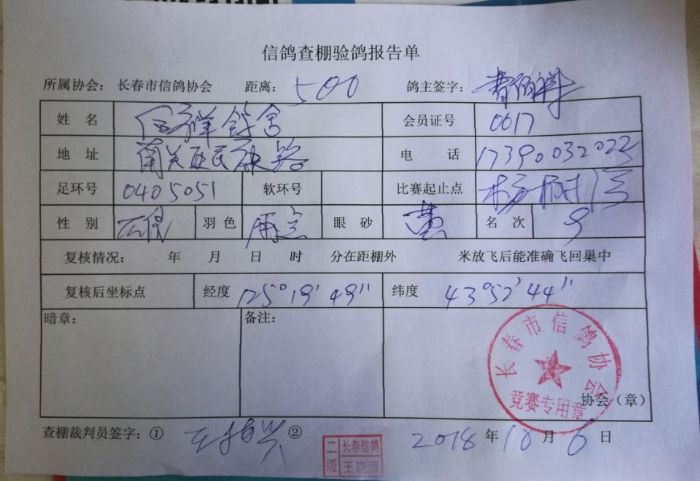 信鸽查棚验鸽报告单
所属协会：长春市信鸽协会 距离：500 鸽主签字：
姓 名 会员证号 0017
地 址 南关区民康路 电 话 17390032022
足环号 0405051 软环号 比赛起止点
性 别 羽色 雨点 眼 砂 黄 名 次 9
复核情况： 年 月 日 时 分在距棚外 米放飞后能准确飞回巢中
复核后坐标点 经度 125°19′49″ 纬度 43°52′44″
暗章： 备注：
长春市信鸽协会
竞赛专用章
协会（章）
查棚裁判员签字：① ② 2018 年 10 月 6 日
二级 长春信鸽